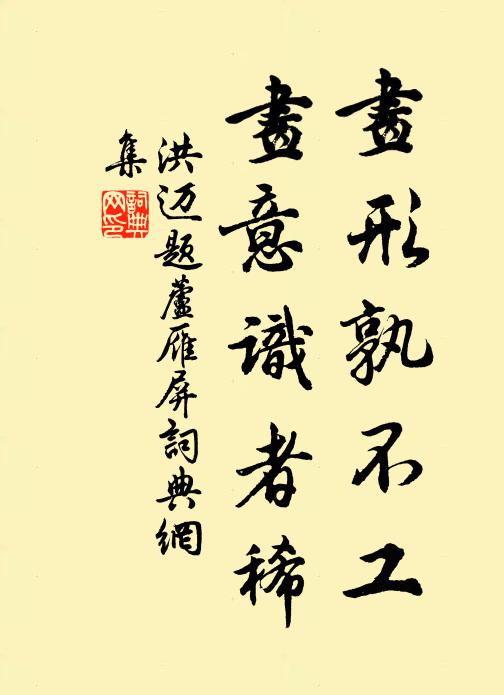 畫形孰不工
畫意識者稀
洪迈题蘆雁屏詞典網
集
詞典
网印